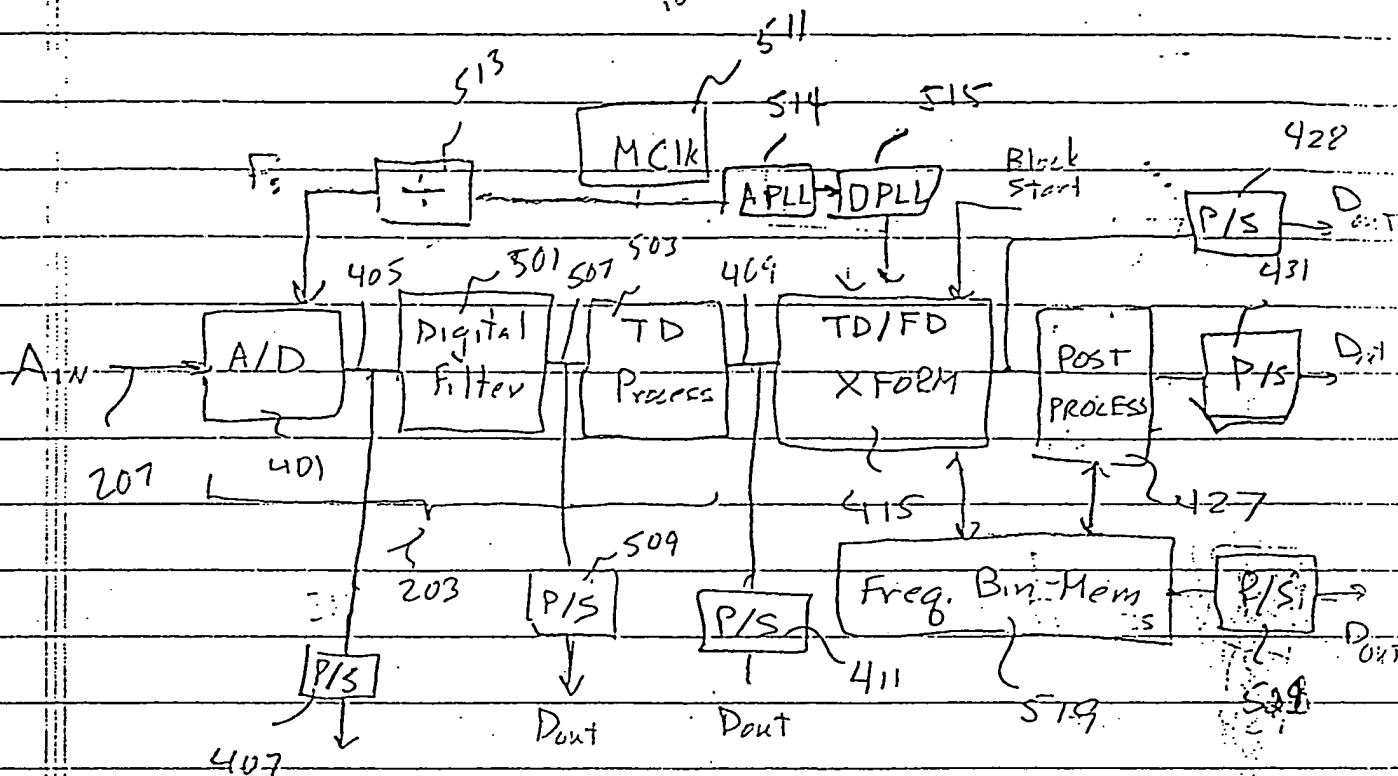 511
513
514
515
428
MClk
÷
APLL
DPLL
Block
Start
P/S
Dout
431
405
501
507
503
409
AIN
A/D
Digital
Filter
TD
Process
TD/FD
XFORM
POST
PROCESS
P/S
Dout
207
401
415
427
203
509
P/S
P/S
Freq. Bin Mem
P/S
Dout
P/S
411
519
407
Dout
Dout